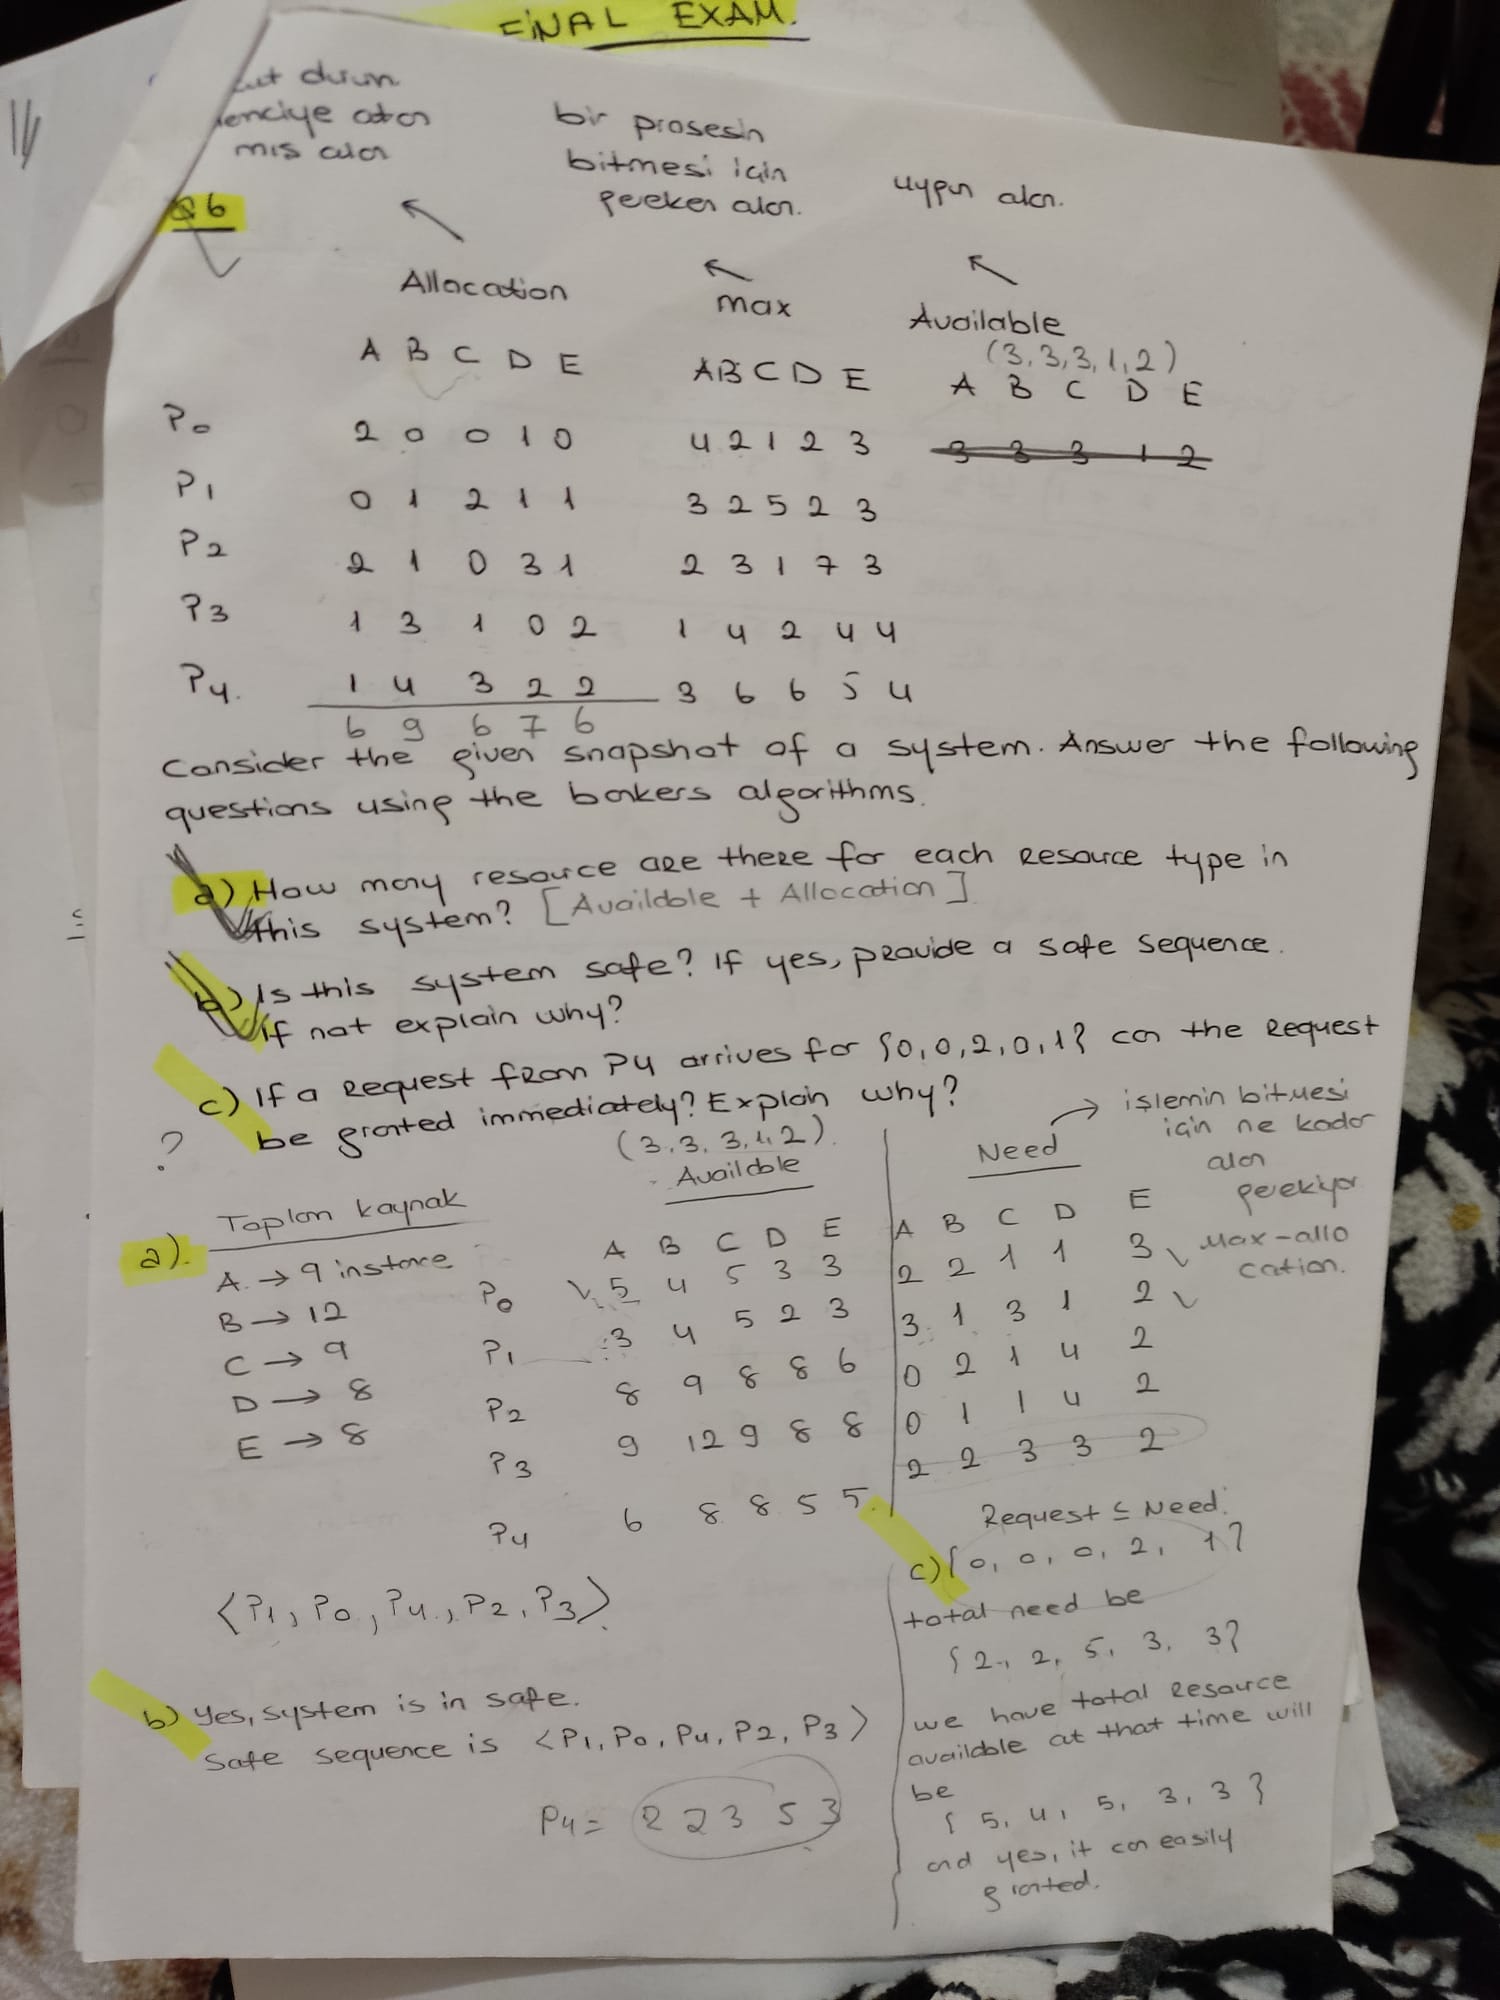 FİNAL EXAM.
durun
atan
mis alan
bir prosesin
bitmesi için
gereken alan.
uygun alan.
Q6
Allocation
max
Available
(3,3,3,1,2)
A B C D E
A B C D E
A B C D E
P0 2 0 0 1 0 4 2 1 2 3 3 3 3 1 2
P1 0 1 2 1 1 3 2 5 2 3
P2 2 1 0 3 1 2 3 1 7 3
P3 1 3 1 0 2 1 4 2 4 4
P4. 1 4 3 2 2 3 6 6 5 4
6 9 6 7 6
Consider the given snapshot of a system. Answer the following
questions using the bankers algorithms.
a) How many resource are there for each resource type in
this system? [Available + Allocation]
b) Is this system safe? If yes, provide a safe sequence.
if not explain why?
c) If a request from P4 arrives for {0,0,2,0,1} can the request
be granted immediately? Explain why?
?
a). Toplam kaynak
A. → 9 instance
B → 12
C → 9
D → 8
E → 8
(3,3,3,1,2).
Available
A B C D E
P0 5 4 5 3 3
P1 3 4 5 2 3
P2 8 9 8 8 6
P3 9 12 9 8 8
P4 6 8 8 5 5.
Need → işlemin bitmesi
için ne kadar
alan
gerekiyor
Max-allo
cation.
A B C D E
2 2 1 1 3
3 1 3 1 2
0 2 1 4 2
0 1 1 4 2
2 2 3 3 2
<P1, P0, P4, P2, P3>
b) Yes, system is in safe.
Safe sequence is <P1, P0, P4, P2, P3>
P4 = 2 2 3 5 3
Request ≤ Need.
c) {0, 0, 0, 2, 1}
total need be
{2, 2, 5, 3, 3}
we have total resource
available at that time will
be
{5, 4, 5, 3, 3}
and yes, it can easily
granted.